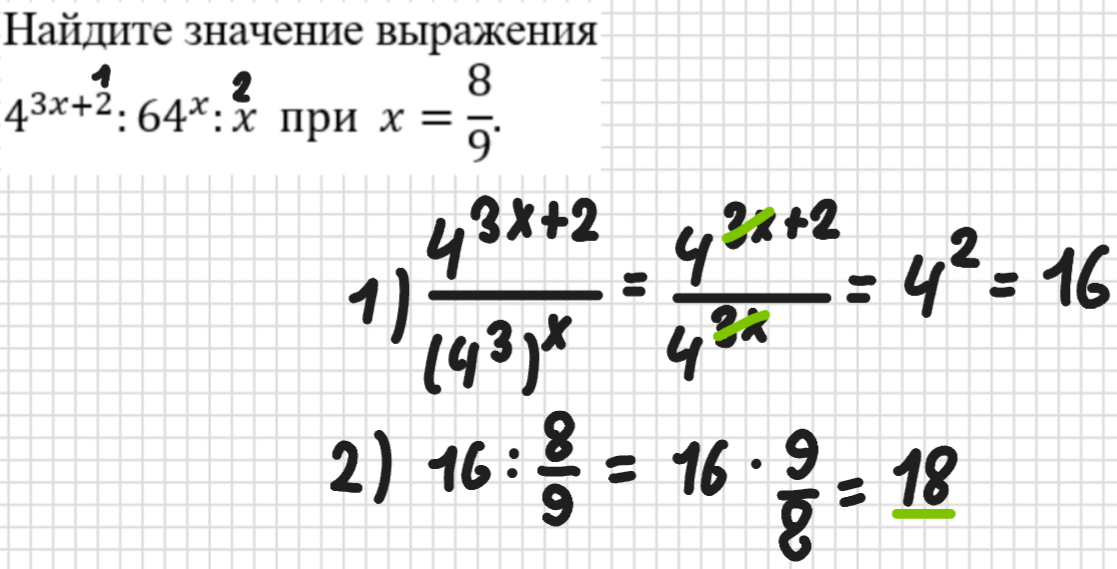 Найдите значение выражения
1 2
4^{3x+2} : 64^x : x при x = 8/9.
1) 4^{3x+2}/(4^3)^x = 4^{3x+2}/4^{3x} = 4^2 = 16
2) 16 : 8/9 = 16 · 9/8 = 18